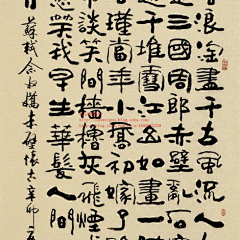 浪淘盡千古風流人
是三國周郎赤壁亂
起千堆雪江山如畫一
瑾當年小喬初嫁了
巾談笑間檣櫓灰飛煙
應笑我早生華髮人間
月
蘇軾念奴嬌赤壁懷古辛卯